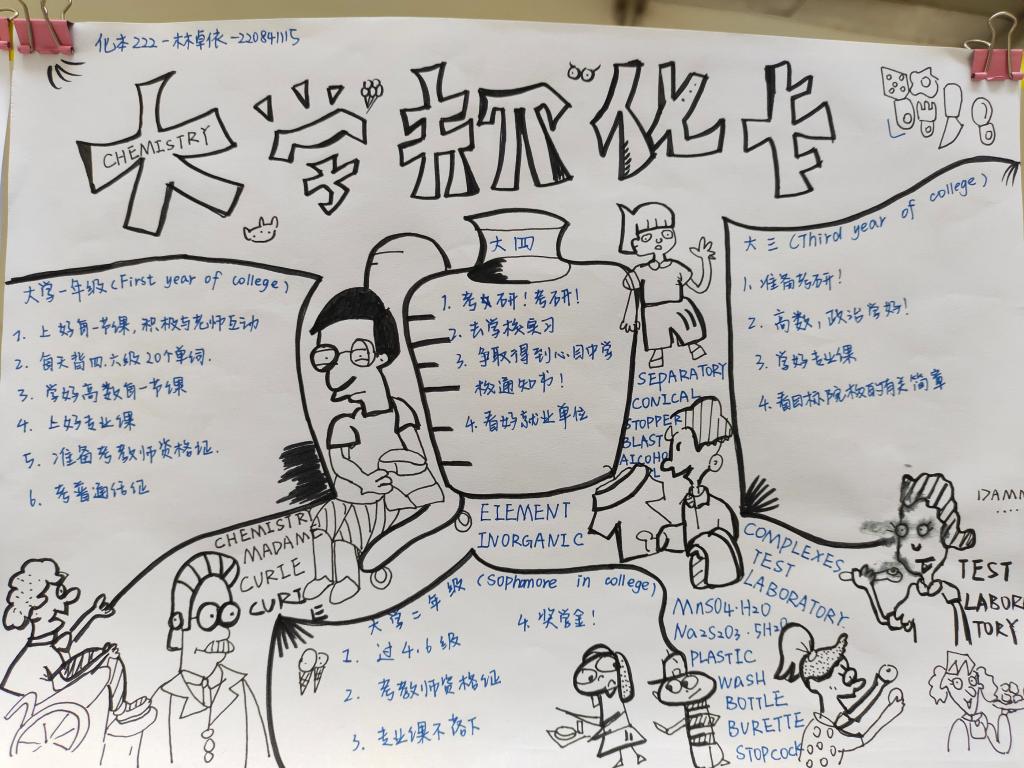 化本222-林卓依-220841115
大学规化卡
CHEMISTRY
大学一年级(First year of college)
1. 上好每一节课,积极与老师互动
2. 每天背四.六级20个单词.
3. 学好高数每一节课
4. 上好专业课
5. 准备考教师资格证.
6. 考普通话证
大四
1. 考研!考研!
2. 去学校复习
3. 争取得到心目中学
校通知书!
4. 看好就业单位
大三(Third year of college)
1. 准备考研!
2. 高数,政治学好!
3. 学好专业课
4. 看目标院校的有关简章
SEPARATORY
CONICAL
STOPPER
BLAST
AlCOHO
L
ELEMENT
INORGANIC
CHEMISTRY
MADAME
CURIE
CURI
E
大学二年级(Sophomore in college)
1. 过4.6级
2. 考教师资格证
3. 专业课不落下
4. 奖学金!
COMPLEXES
TEST
LABORATORY
MnSO4·H2O
Na2S2O3·5H2O
PLASTIC
WASH
BOTTLE
BURETTE
STOPCOCK
DAMN
....
TEST
LABORA
TORY